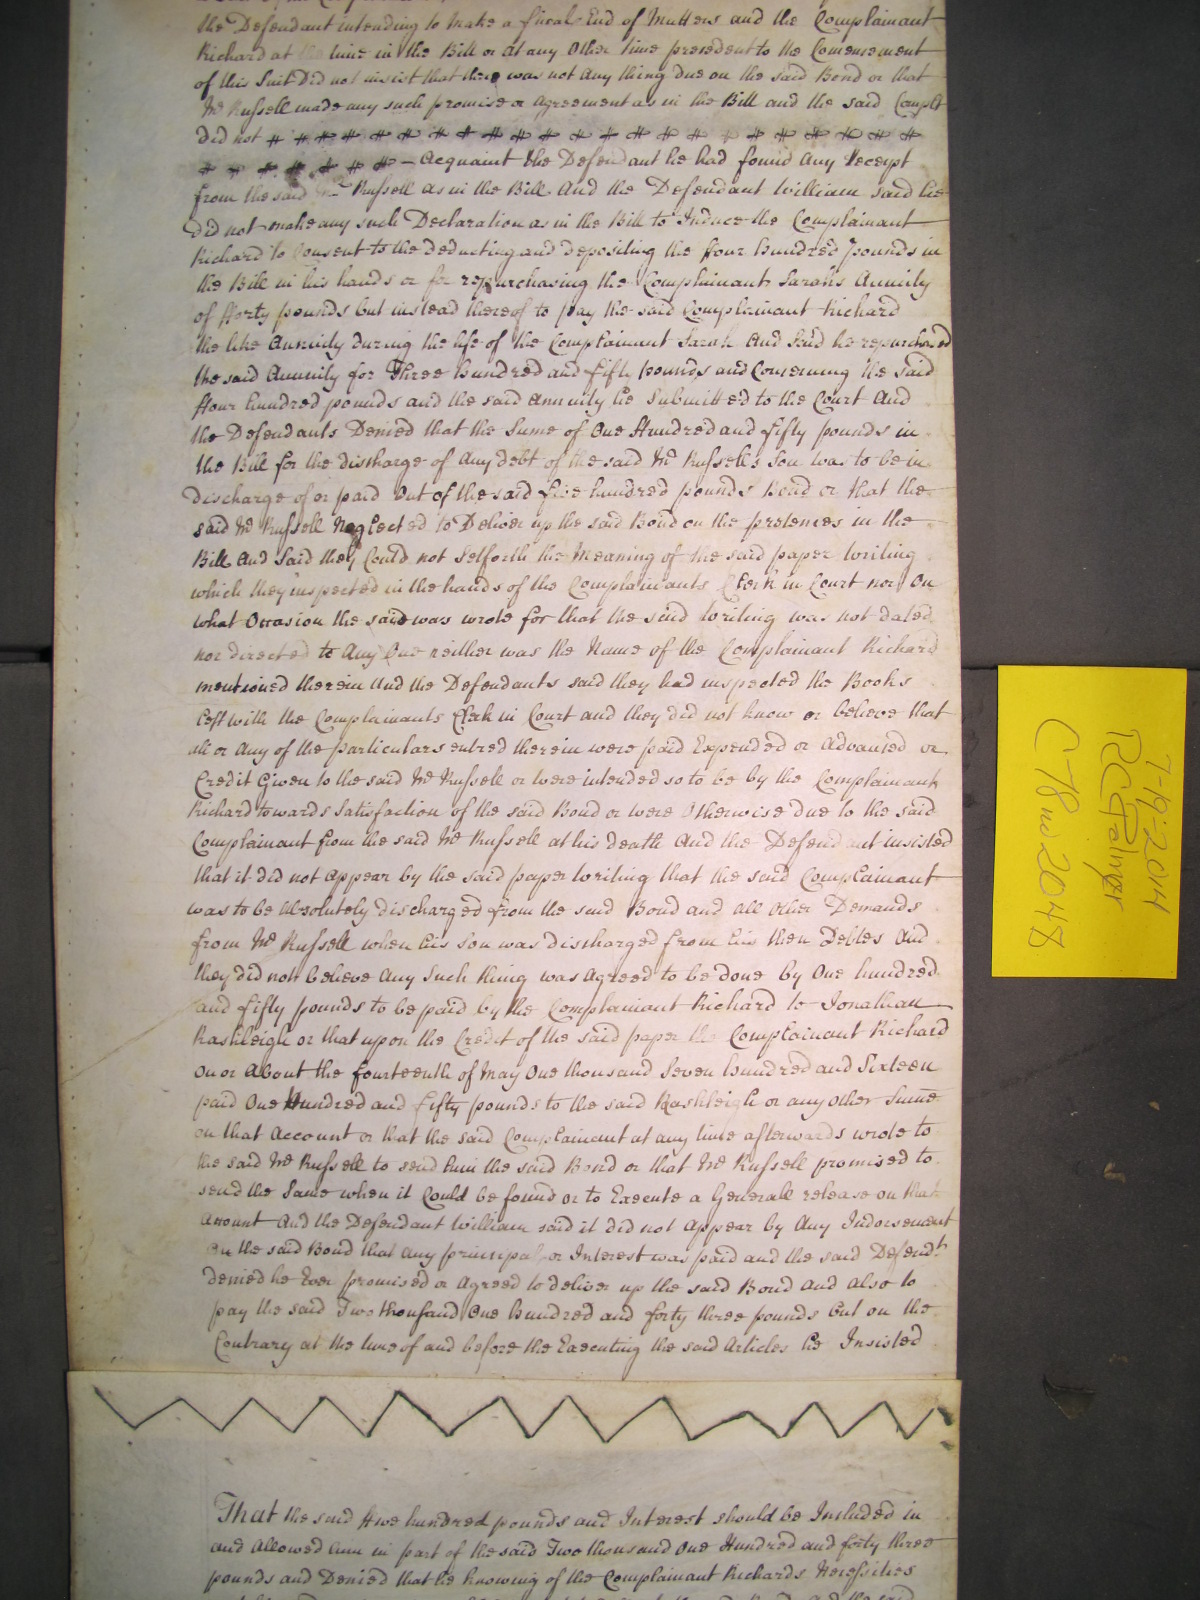 the Defendant intending to make a finall End of Matters and the Complainant
Richard at time in the Bill or at any Other time precedent to the Comencement
of this Suit Did not insist that there was not Any thing due on the said Bond or that
Mr Russell made any such promise or Agreement as in the Bill and the said Complt
did not # # # # # # # # # # # # # # # # # # # # # # #
# # # # # # # – Acquaint the Defendant he had found any Receipt
from the said Mr Russell as in the Bill And the Defendant William said he
did not make any such Declaration as in the Bill to Induce the Complainant
Richard to Consent to the deducting and depositing the four hundred pounds in
the Bill in his hands or for repurchasing the Complainant Sarahs Annuity
of fforty pounds but instead thereof to pay the said Complainant Richard
the like Annuity during the life of the Complainant Sarah And Said he repurchased
the said Annuity for Three hundred and fifty pounds and Concerning the Said
ffour hundred pounds and the said Annuity he Submitted to the Court And
the Defendants Denied that the Sume of One Hundred and fifty pounds in
the Bill for the discharge of Any debt of the said Mr Russells Son was to be in
discharge of or paid Out of the said five hundred pounds Bond or that the
said Mr Russell Neglected to Deliver up the said Bond on the pretences in the
Bill And Said they Could not Setforth the Meaning of the said paper Writing
which they inspected in the hands of the Complainants Clerk in Court nor On
what Occasion the said was wrote for that the said writing was not dated
nor directed to Any One neither was the Name of the Complainant Richard
mentioned therein And the Defendants said they had inspected the Books
left with the Complainants Clerk in Court and they did not know or believe that
all or Any of the particulars entred therein were paid Expended or Advanced or
Credit Given to the said Mr Russell or were intended so to be by the Complainant
Richard towards Satisfaction of the said Bond or were Otherwise due to the said
Complainant from the said Mr Russell at his death And the Defendant insisted
that it did not Appear by the said paper Writing that the said Complainant
was to be Absolutely discharged from the said Bond and all Other Demands
from Mr Russell when his Son was discharged from his then Debtes And
they did not believe Any Such thing was Agreed to be done by One hundred
and fifty pounds to be paid by the Complainant Richard to Jonathan
Rashleigh or that upon the Credit of the said paper the Complainant Richard
On or About the fourteenth of May One thousand Seven hundred and Sixteen
paid One Hundred and fifty pounds to the said Rashleigh or any other Sume
on that Account or that the said Complainant at any time afterwards wrote to
the said Mr Russell to send him the said Bond or that Mr Russell promised to
send the Same when it Could be found or to Execute a Generall release on that
Account And the Defendant William said it did not Appear by Any Indorsement
On the said Bond that any principal or Interest was paid and the said Defendt
denied he Ever promised or Agreed to deliver up the said Bond and also to
pay the said Two thousand One hundred and forty three pounds but on the
Contrary at the time of and before the Executing the said Articles he Insisted
That the said ffive hundred pounds and Interest should be Included in
and Allowed him in part of the said Two thousand One Hundred and forty three
pounds and Denied that he knowing of the Complainant Richards Necessities
7-19-2014
RC Palmer
C78no2048